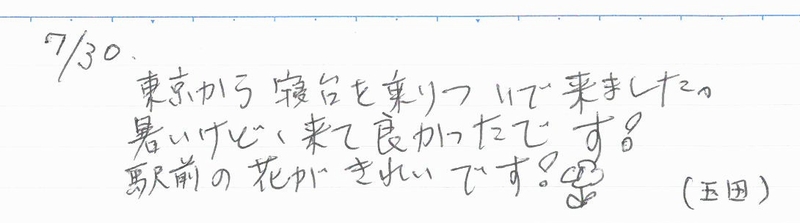 7/30.
東京から寝台を乗りついで来ました。
暑いけど、来て良かったです!
駅前の花がきれいです!
(玉田)